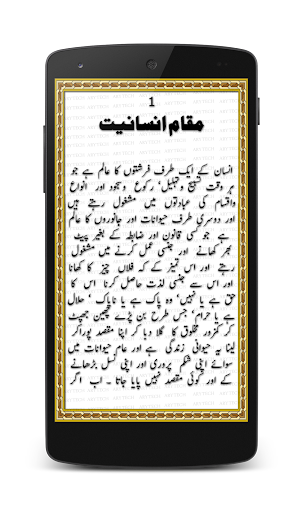 1
مقام انسانیت
انسان کے ایک طرف فرشتوں کا عالم ہے جو
ہر وقت تسبیح و تہلیل، رکوع و سجود اور انواع
واقسام کی عبادتوں میں مشغول رہتے ہیں
اور دوسری طرف حیوانات اور جانوروں کا عالم
ہے جو کسی قانون اور ضابطہ کے بغیر پیٹ
بھر کھانے اور جنسی عمل کرنے میں مشغول
رہتے اور اس تمیز کے کہ فلاں چیز کا کھانا
اور اس سے جنسی لذت حاصل کرنا اس کا
حق ہے یا نہیں' وہ پاک ہے یا ناپاک' حلال
ہے یا حرام' جس طرح بن پڑے چھین جھپٹ
کر کمزور مخلوق کا گلا دبا کر اپنا مقصد پورا کر
لینا یہ حیوانی زندگی ہے اور عام حیوانات میں
سوائے اپنی شکم پروری اور اپنی نسل بڑھانے
کے اور کوئی مقصد نہیں پایا جاتا ۔ اب اگر